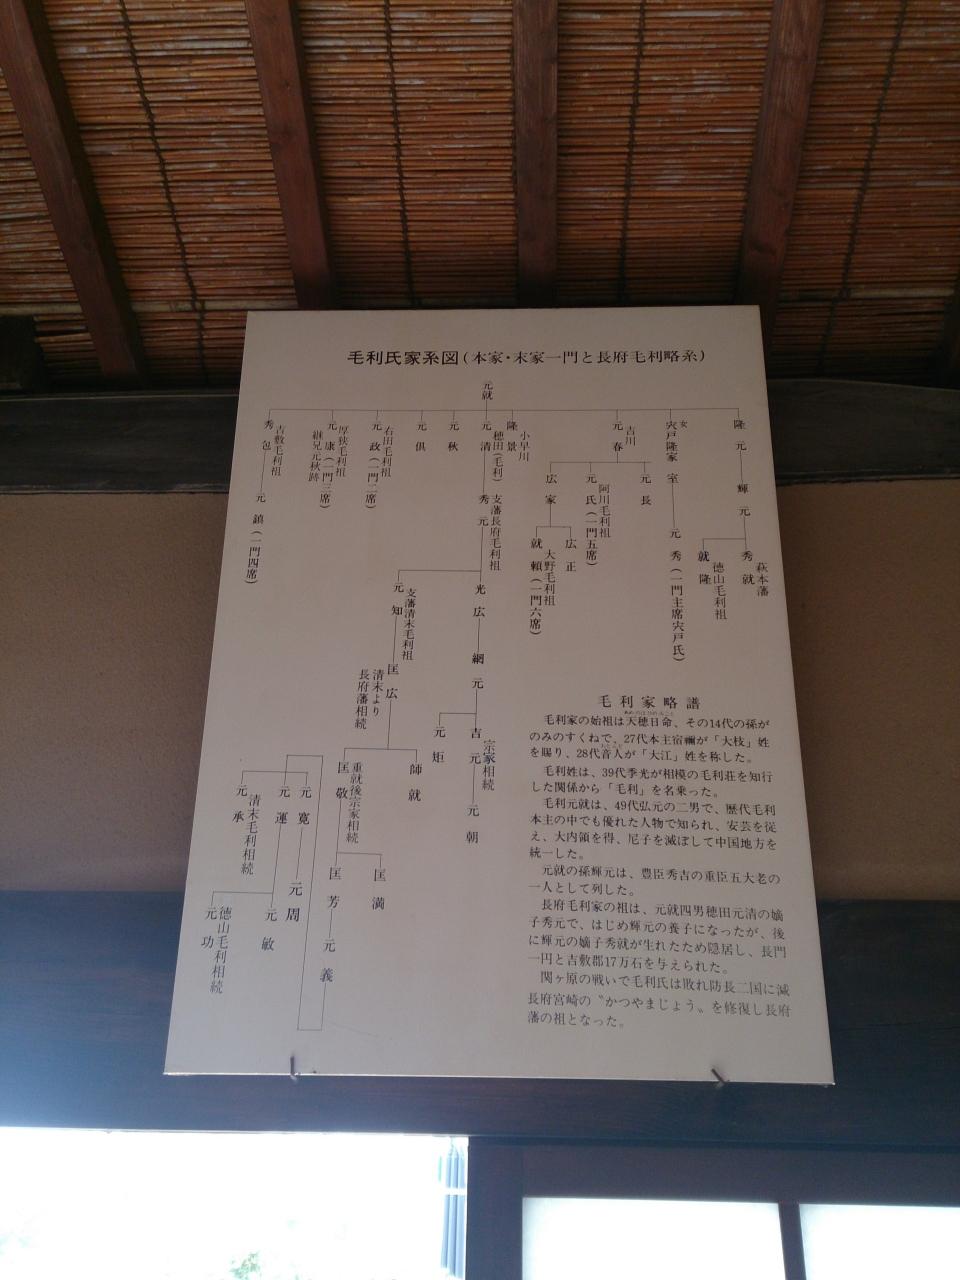 毛利氏家系図(本家・末家一門と長府毛利略系)
元就
隆元
輝元
秀就
萩本藩
就隆
徳山毛利祖
女
宍戸隆家 室
元秀(一門主席宍戸氏)
吉川
元春
元長
元氏(一門五席)
阿川毛利祖
広家
広正
就頼(一門六席)
大野毛利祖
小早川
隆景
穂田(毛利)
元清
秀元
支藩長府毛利祖
光広
綱元
吉元
宗家相続
元朝
元矩
元知
支藩清末毛利祖
匡広
清末より
長府藩相続
師就
匡敬
重就後宗家相続
匡満
匡芳
元義
元寛
元周
元運
元承
清末毛利相続
元敏
元功
徳山毛利相続
元秋
元倶
元政(一門二席)
右田毛利祖
元康(一門三席)
厚狭毛利祖
継兄元秋跡
秀包
吉敷毛利祖
元鎮(一門四席)
毛利家略譜
毛利家の始祖は天穂日命、その14代の孫が
のみのすくねで、27代本主宿禰が「大枝」姓
を賜り、28代音人が「大江」姓を称した。
毛利姓は、39代季光が相模の毛利荘を知行
した関係から「毛利」を名乗った。
毛利元就は、49代弘元の二男で、歴代毛利
本主の中でも優れた人物で知られ、安芸を従
え、大内領を得、尼子を滅ぼして中国地方を
統一した。
元就の孫輝元は、豊臣秀吉の重臣五大老の
一人として列した。
長府毛利家の祖は、元就四男穂田元清の嫡
子秀元で、はじめ輝元の養子になったが、後
に輝元の嫡子秀就が生れたため隠居し、長門
一円と吉敷郡17万石を与えられた。
関ヶ原の戦いで毛利氏は敗れ防長二国に減
長府宮崎の〝かつやまじょう〟を修復し長府
藩の祖となった。